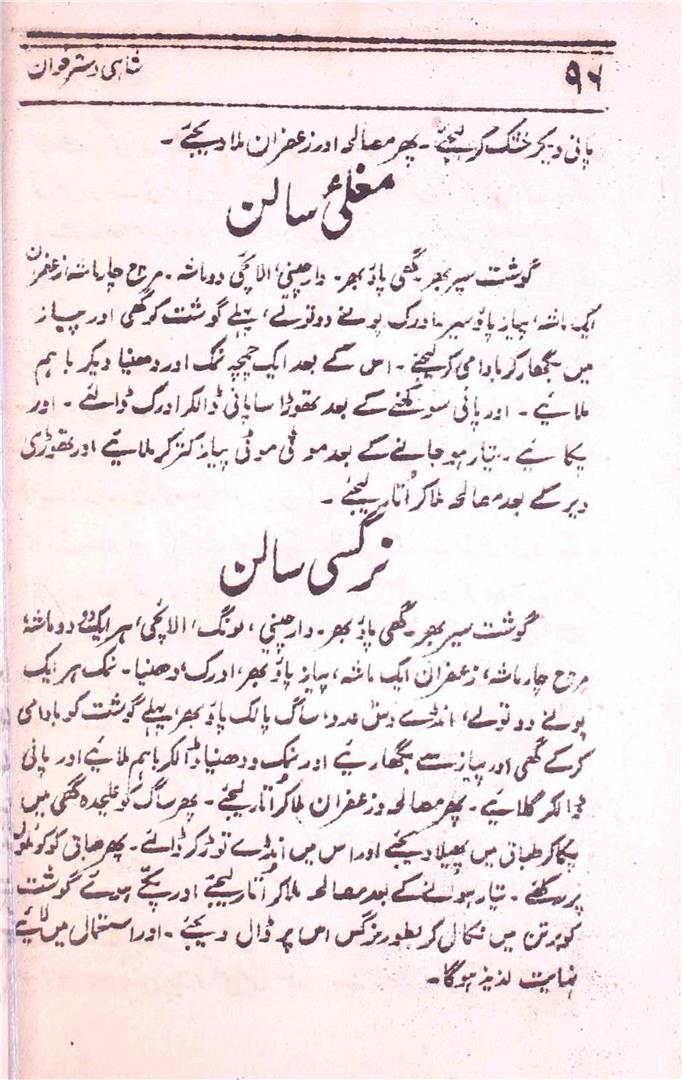 ۹۶
شاہی دسترخوان
پانی دیکر خشک کر لیجئے۔ پھر معالحہ اور زعفران ملا دیجئے۔
مغلئ سالن
گوشت سیر بھر گھی پاؤ بھر۔ دارچینی، الائچی دو ماشہ۔ مرچ چار ماشہ زعفران
ایک ماشہ، پیاز پاؤ سیر۔ ادرک پونے دو تولے، پہلے گوشت کو گھی اور پیاز
میں بگھار کر بادامی کر لیجئے۔ اس کے بعد ایک چمچہ نمک اور دھنیا دیکر باہم
ملائیے۔ اور پانی سوکھنے کے بعد تھوڑا سا پانی ڈالکر ادرک ڈالئے۔ اور
پکائیے۔ تیار ہو جانے کے بعد موٹی موٹی پیاز کتر کر ملائیے اور تھوڑی
دیر کے بعد معالحہ ملا کر اُتار لیجئے۔
نرگسی سالن
گوشت سیر بھر۔ گھی پاؤ بھر۔ دارچینی، لونگ، الائچی، ہر ایک دو دو ماشہ
مرچ چار ماشہ، زعفران ایک ماشہ، پیاز پاؤ بھر، ادرک، دھنیا۔ نمک ہر ایک
پونے دو تولے، انڈے دس عدد، ساگ پالک پاؤ بھر، پہلے گوشت کو بادامی
کر کے گھی اور پیاز سے بگھاریے اور نمک و دھنیا ڈالکر باہم ملائیے اور پانی
ڈالکر گلائیے۔ پھر معالحہ و زعفران ملا کر اُتار لیجئے۔ پھر ساگ کو علیحدہ گھی میں
پکا کر طباق میں پھیلا دیجئے اور اس میں انڈے توڑ کر ڈالئے۔ پھر طباق کو کوئلوں
پر رکھئے۔ تیار ہونے کے بعد معالحہ ملا کر اُتار لیجئے اور پکے ہوئے گوشت
کو برتن میں نکال کر بطور نرگس اس پر ڈال دیجئے۔ اور استعمال میں لائیے
نہایت لذیذ ہوگا۔